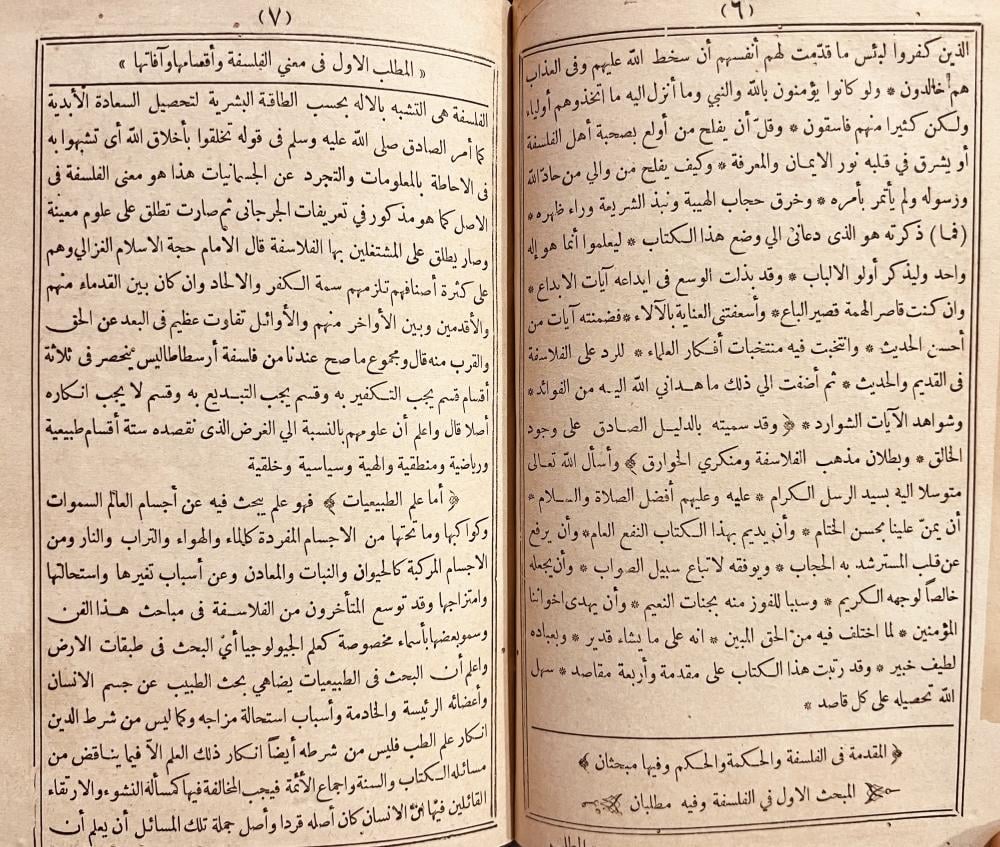 (٦)
الذين كفروا لبئس ما قدّمت لهم أنفسهم أن سخط الله عليهم وفى العذاب
هم خالدون * ولو كانوا يؤمنون بالله والنبي وما أنزل اليه ما اتخذوهم أولياء
ولكن كثيرا منهم فاسقون * وقلّ أن يفلح من أولع بصحبة أهل الفلسفة
أو يشرق في قلبه نور الايمان والمعرفة * وكيف يفلح من والي من حادّ الله
ورسوله ولم يأتمر بأمره * وخرق حجاب الهيبة ونبذ الشريعة وراء ظهره *
(فما) ذكرته هو الذى دعانى الي وضع هذا الكتاب * ليعلموا أنما هو إله
واحد وليذكر أولو الالباب * وقد بذلت الوسع في ايداعه آيات الابداع *
وان كنت قاصر الهمة قصير الباع * وأسعفتنى العناية بالآلاء * فضمنته آيات من
أحسن الحديث * وانتخبت فيه منتخبات أفكار العلماء * للرد على الفلاسفة
فى القديم والحديث * ثم أضفت الي ذلك ما هدانى الله اليه من الفوائد *
وشواهد الآيات الشوارد * ﴿ وقد سميته بالدليل الصادق على وجود
الخالق * وبطلان مذهب الفلاسفة ومنكري الخوارق ﴾ وأسأل الله تعالى
متوسلا اليه بسيد الرسل الكرام * عليه وعليهم أفضل الصلاة والسلام *
أن يمنّ علينا بحسن الختام * وأن يديم بهذا الكتاب النفع العام * وأن يرفع
عن قلب المسترشد به الحجاب * ويوفقه لاتباع سبيل الصواب * وأن يجعله
خالصاً لوجهه الكريم * وسببا للفوز منه بجنات النعيم * وأن يهدى اخواننا
المؤمنين * لما اختلف فيه من الحق المبين * انه على ما يشاء قدير * وبعباده
لطيف خبير * وقد رتبت هذا الكتاب على مقدمة وأربعة مقاصد * سهل
الله تحصيله على كل قاصد *
﴿ المقدمة فى الفلسفة والحكمة والحكم وفيها مبحثان ﴾
المبحث الاول في الفلسفة وفيه مطلبان
(٧)
« المطلب الاول فى معني الفلسفة وأقسامها وآفاتها »
الفلسفة هى التشبه بالاله بحسب الطاقة البشرية لتحصيل السعادة الأبدية
كما أمر الصادق صلى الله عليه وسلم فى قوله تخلقوا بأخلاق الله أى تشبهوا به
فى الاحاطة بالمعلومات والتجرد عن الجسمانيات هذا هو معنى الفلسفة فى
الاصل كما هو مذكور في تعريفات الجرجانى ثم صارت تطلق على علوم معينة
وصار يطلق على المشتغلين بها الفلاسفة قال الامام حجة الاسلام الغزالي وهم
على كثرة أصنافهم تلزمهم سمة الكفر والالحاد وان كان بين القدماء منهم
والأقدمين وبين الأواخر منهم والأوائل تفاوت عظيم فى البعد عن الحق
والقرب منه قال ومجموع ما صح عندنا من فلسفة أرسطاطاليس ينحصر فى ثلاثة
أقسام قسم يجب التكفير به وقسم يجب التبديع به وقسم لا يجب انكاره
أصلا قال واعلم أن علومهم بالنسبة الي الغرض الذى نقصده ستة أقسام طبيعية
ورياضية ومنطقية والهية وسياسية وخلقية
﴿ أما علم الطبيعيات ﴾ فهو علم يبحث فيه عن أجسام العالم السموات
وكواكبها وما تحتها من الاجسام المفردة كالماء والهواء والتراب والنار ومن
الاجسام المركبة كالحيوان والنبات والمعادن وعن أسباب تغيرها واستحالتها
وامتزاجها وقد توسع المتأخرون من الفلاسفة فى مباحث هذا الفن
وسمو بعضها بأسماء مخصوصة كعلم الجيولوجيا أيْ البحث فى طبقات الارض
واعلم أن البحث فى الطبيعيات يضاهي بحث الطبيب عن جسم الانسان
وأعضائه الرئيسة والخادمة وأسباب استحالة مزاجه وكما ليس من شرط الدين
انكار علم الطب فليس من شرطه أيضاً انكار ذلك العلم الا فيما يناقض من
مسائله الكتاب والسنة واجماع الأئمة فيجب المخالفة فيها كمسألة النشوء والارتقاء
القائلين فيها ان الانسان كان أصله قردا وأصل جملة تلك المسائل أن يعلم أن